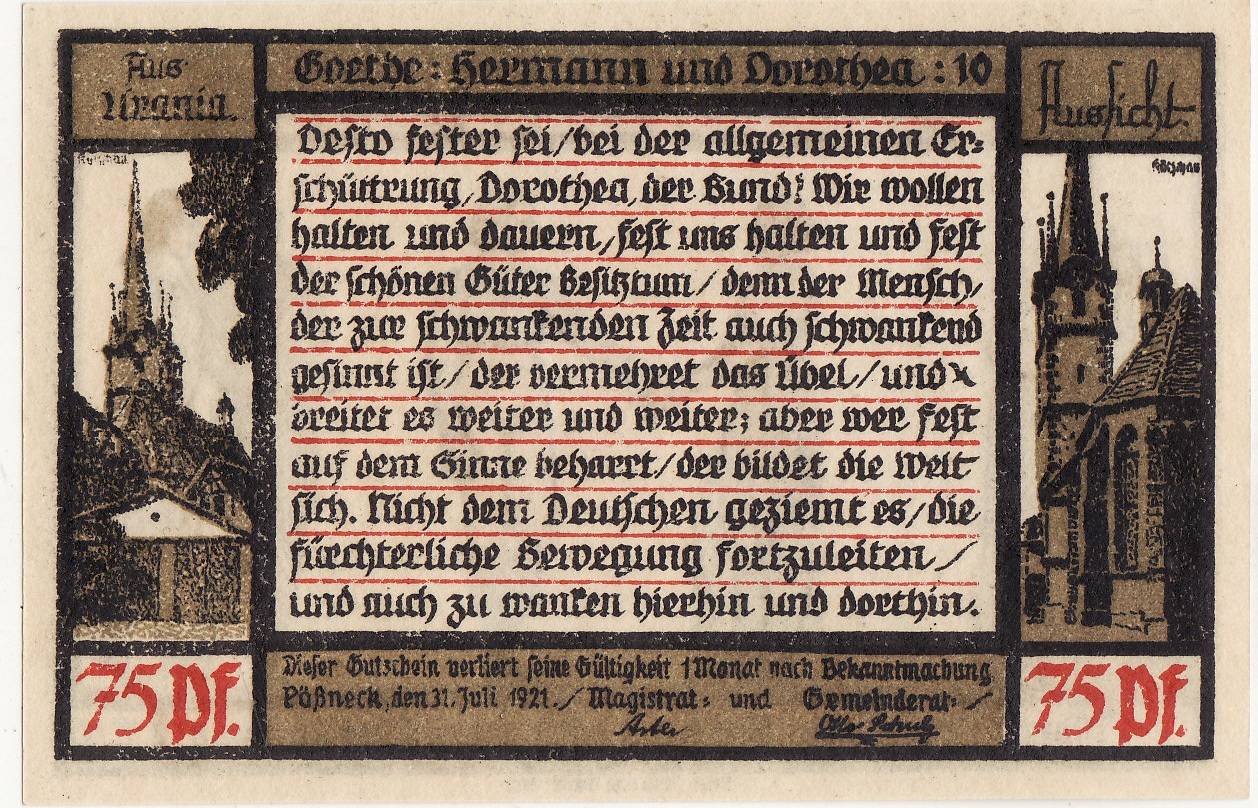 Aus
Urania.
Goethe: Hermann und Dorothea: 10
Aussicht.
Desto fester sei/bei der allgemeinen Er=
schüttrung, Dorothea, der Bund! Wir wollen
halten und dauern, fest uns halten und fest
der schönen Güter Besitztum/ denn der Mensch,
der zur schwankenden Zeit auch schwankend
gesinnt ist/ der vermehret das Übel/ und
breitet es weiter und weiter; aber wer fest
auf dem Sinne beharrt/ der bildet die Welt
sich. Nicht dem Deutschen geziemt es/ die
fürchterliche Bewegung fortzuleiten/
und auch zu wanken hierhin und dorthin.
75 Pf.
Dieser Gutschein verliert seine Gültigkeit 1 Monat nach Bekanntmachung
Pößneck, den 31. Juli 1921./ Magistrat= und Gemeinderat=/
75 Pf.